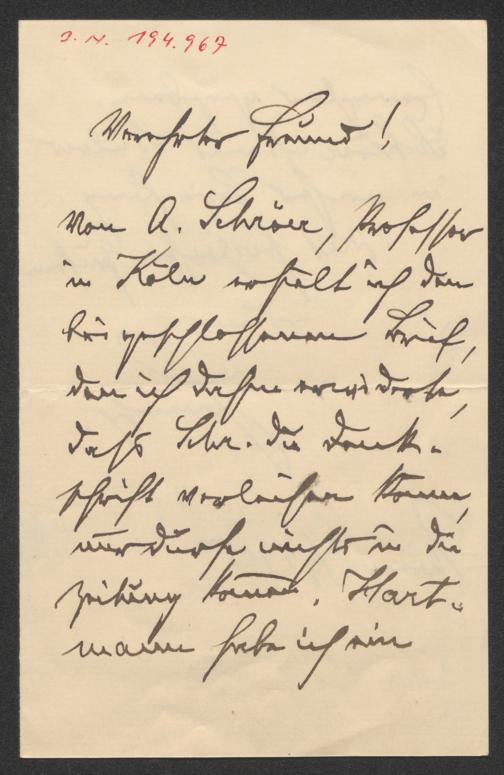 J. N. 194.967
Verehrter Freund!
Von A. Schröer, Professor
in Köln erhielt ich den
beigeschlossenen Brief,
den ich dahin erwiderte,
daß Schr. die Denk-
schrift verleihen kann,
nur dürfe nichts in die
Zeitung kommen. Hart-
mann habe ich ein